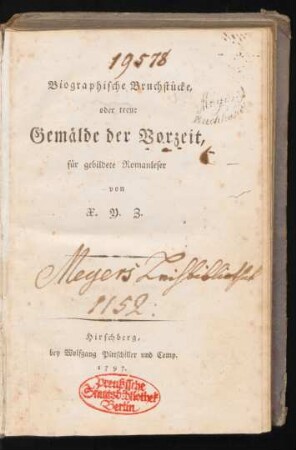 19578
Biographische Bruchstücke,
oder treue
Gemälde der Vorzeit,
für gebildete Romanleser
von
X. Y. Z.
Meyers Leihbibliothek
1152.
Hirschberg,
bey Wolfgang Pittschiller und Comp.
1797.
Preußische
Staatsbibliothek
Berlin